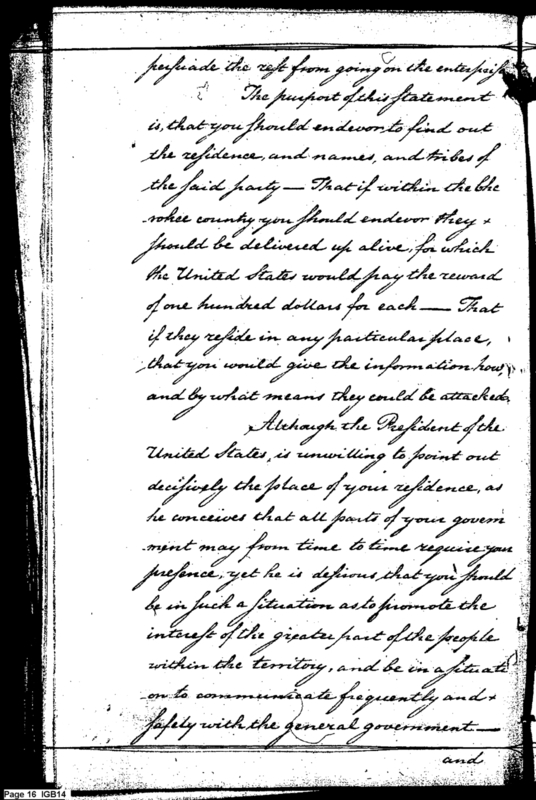 persuade the rest from going on the enterprise
The purport of this statement
is, that you should endevor to find out
the residence, and names, and tribes of
the said party — That if within the Che
rokee country you should endevor they +
should be delivered up alive, for which
the United States would pay the reward
of one hundred dollars for each — That
if they reside in any particular place,
that you would give the information how,
and by what means they could be attacked.
Although the President of the
United States, is unwilling to point out
decisively the place of your residence, as
he conceives that all parts of your govern
ment may from time to time require your
presence, yet he is desirous, that you should
be in such a situation as to promote the
interest of the greater part of the people
within the territory, and be in a situati
on to communicate frequently and +
safely with the general government —
and
Page 16 IGB14